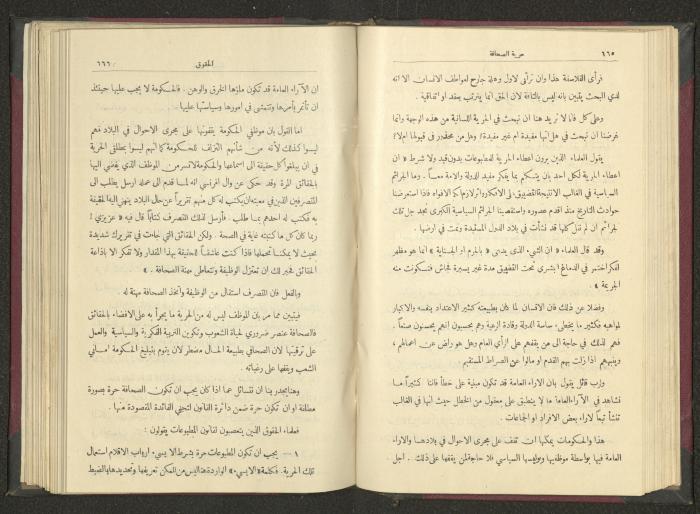 ٦٦٥
حرية الصحافة
فرأي الفلاسفة هذا وان تراءى لاول وهلة جارح لعواطف الانسان الا انه
لدى البحث يتبين بانه ليس بالتافه لان الحق انما يترتب بعقد او اتفاقية .
وعلى كل فانا لا نريد هنا ان نبحث في الحرية اللسانية من هذه الوجهة وانما
غرضنا ان نبحث في هل انها مفيدة ام غير مفيدة؛ وهل من محذور في قبولها ام لا؛
يقول العلماء الذين يرون اعطاء الحرية للمطبوعات بدون قيد ولا شرط « ان
اعطاء الحرية لكل احد بان يتكلم بما يفكر مفيد للدولة والامة معاً . وما الجرائم
السياسية في الغالب الا نتيجة التضييق على الافكار والزام كم الافواه فاذا استعرضنا
حوادث التاريخ منذ اقدم عصوره واستقصينا الجرائم السياسية الكبرى نجد جل تلك
الجرائم ان لم نقل كلها قد نشأت في بلاد الدول المستبدة ونمت في ارضها .
وقد قال العلماء « ان الشيء الذي يدعى « بالجرم او الجناية » انما هو مظهر
لفكر اختمر في الدماغ البشري تحت التضييق مدة غير يسيرة فجاش فتكونت منه
الجريمة »
وفضلا عن ذلك فان الانسان لما كان بطبيعته كثير الاعتداد بنفسه والاكبار
لمواهبه فكثير ما يخطىء ساسة الدولة وقادة ازعية وهم يحسبون انهم يحسنون صنعاً .
فهم لذلك في حاجة الى من يقفهم على الرأي العام وهل هو راض عن اعمالهم ؛
وينبههم اذا زلت بهم القدم او مالوا عن الصراط المستقيم
ورب قائل يقول بان الاراء العامة قد تكون مبنية على خطأ فاننا كثيراً ما
نشاهد في الآراء العامة ما لا ينطبق على معقول من الخطل حيث انها في الغالب
تنشأ تبعاً لاراء بعض الافراد او الجماعات .
هذا والحكومات يمكنها ان تقف على مجرى الاحوال في بلادها والاراء
العامة فيها بواسطة موظفيها وبوليسها السياسي فلا حاجة لمن يقفها على ذلك . اجل
الحقوق
٦٦٦
ان الآراء العامة قد تكون ملؤها الخرق والوهن . فالحكومة لا يجب عليها حينئذ
ان تأتمر بأمرها وتتمشى في امورها وسياستها عليها .
اما القول بان موظفي الحكومة يقفونها على مجرى الاحوال في البلاد فهم
ليسوا كذلك لأنه من شأنهم التزلف للحكومة كما انهم ليسوا بطلقي الحرية
في ان يبلغوا كل حقيقة الى اسماعها والحكومة لا تسر من الموظف الذي يفضي اليها
بالحقائق المرة وقد حكى عن وال افرنسي انه لما قدم الى عمله ارسل يطلب الى
المتصرفين الذين في معيته ان يكتب له كل منهم تقريراً عن حال البلاد ينهي اليه الحقيقة
به فكتب له احدهم بما طلب . فأرسل لذلك المتصرف كتاباً قال فيه « عزيزي !
ربما كان كل ما كتبته غاية في الصحة . ولكن الحقائق التي جاءت في تقريرك شديدة
بحيث لا يمكننا تحملها فاذا كنت عاشقاً للحقيقة بهذا المقدار ولا تفكر الا باذاعة
الحقائق فخير لك ان تعتزل الوظيفة وتتعاطى مهنة الصحافة . »
وبالفعل فان المتصرف استقال من الوظيفة وأتخذ الصحافة مهنة له .
فيتبين مما مر بان الموظف ليس له من الحرية ما يجرأ به على الافضاء بالحقائق
فالصحافة عنصر ضروري لحياة الشعوب وتكوين التربية الفكرية والسياسية والعمل
على ترقيتها لان الصحافي بطبيعة الحال مضطر لان يقوم بتبليغ الحكومة اماني
الشعب ويقفها على رغباته .
وهنا يجدر بنا ان نتسائل عما اذا كان يجب ان تكون الصحافة حرة بصورة
مطلقة او ان تكون حرة ضمن دائرة القانون لتجنى الفائدة المقصودة منها .
فعلماء الحقوق الذين يتعصبون لقانون المطبوعات يقولون :
١ — يجب ان تكون المطبوعات حرة بشرط الا يسيء ارباب الاقلام استعمال
تلك الحرية . فكلمة «الا يسيء» الواردة هنا ليس من الممكن تعريفها وتحديدها بالضبط